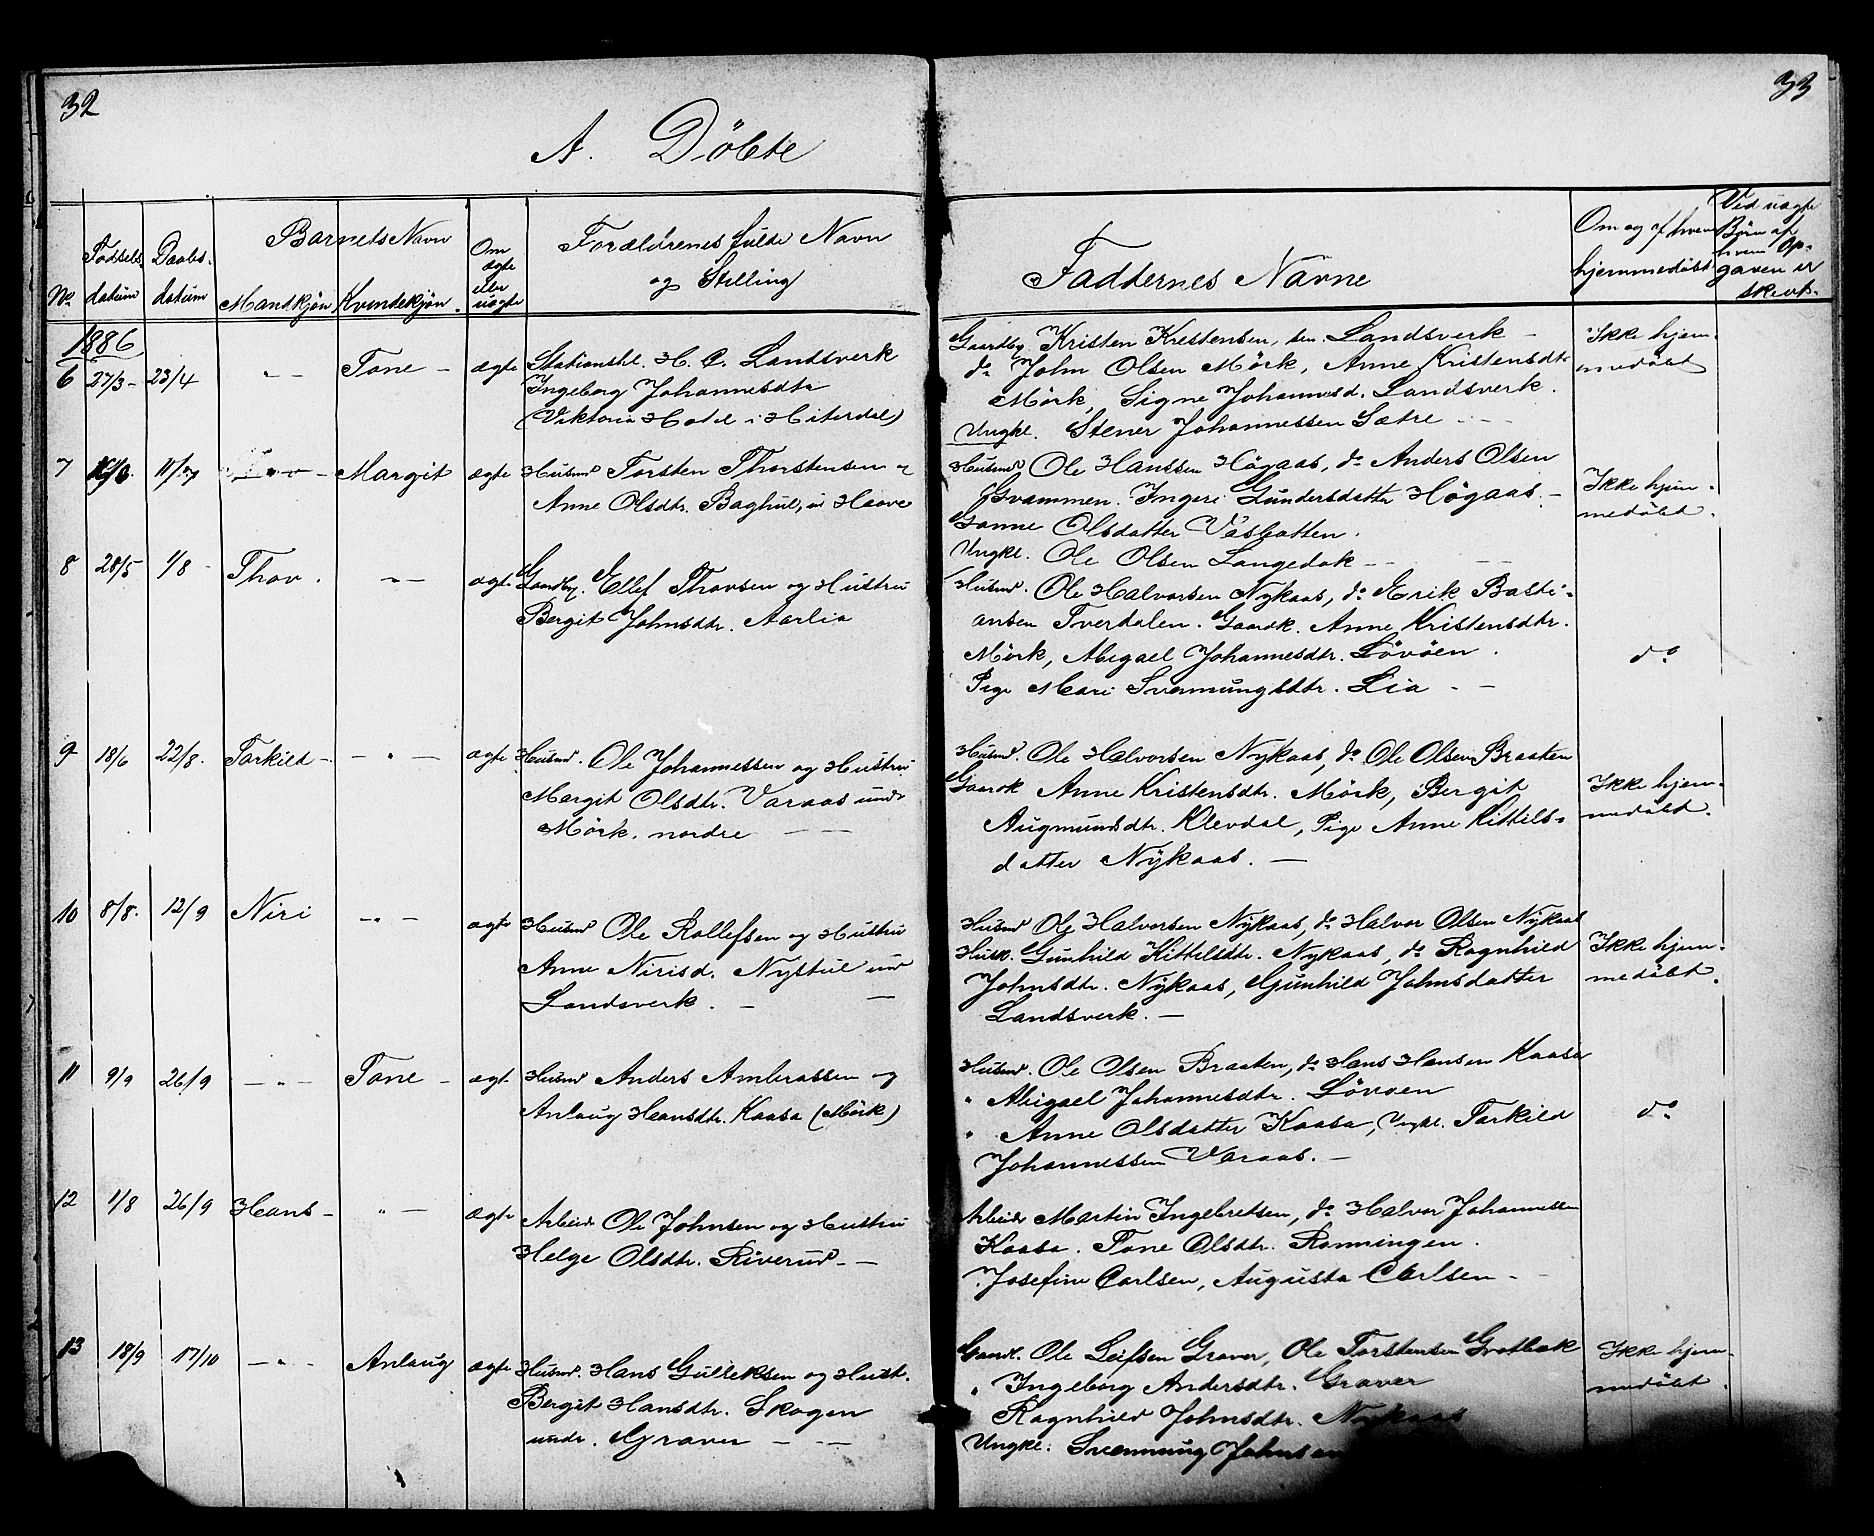 32
A. Döbte
No.
Födsels-
datum
Daabs-
datum
Barnets Navn
Mandkjön
Kvindekjön.
Om
ægte
eller
uægte
Forældrenes fulde Navn
og Stilling
1886
6 27/3 - 23/4 - " - Tone - ægte Stationsh. H. C. Landsverk
Ingeborg Johannesdtr
(Viktoria Hotel i Hiterdal)
7 11/7 - " - Margit ægte Husmd Torsten Thorstensen og
Anne Olsdtr. Baghul, u Haave
8 28/5 1/8 Thov. - " - ægte Gaardbr. Ellef Thovsen og Hustru
Bergit Johnsdtr. Aarlia
9 18/6 22/8. Tarkild - - " - ægte Husmd. Ole Johannessen og Hustru
Margit Olsdtr. Varaas undr
Mörk. nordre - -
10 8/8. 12/9 Niri - " - ægte Husmd Ole Rollefsen og Hustru
Anne Nirisd. Nystul und
Landsverk. - -
11 9/9 26/9 - " - Tone - ægt. Husmd Anders Ambrossen og
Anlaug Hansdtr. Kaasa (Mörk)
12 1/8 26/9 Hans - " - ægte Arbeidr Ole Johnsen og Hustru
Helge Olsdtr. Riverud - -
13 18/9 17/10 - " - Anlaug ægte Husmd. Hans Gulleksen og Hust.
Bergit Hansdtr. Skogen
undr. Graver - - -
33
Faddernes Navne
Om og af hvem
hjemmedöbt
Ved uægte
Börn af
hvem Op-
gaven er
skevet.
Gaardbr Kristen Krestensen, Landsverk -
do John Olsen Mörk, Anne Kristensdtr
Mörk, Signe Johannesd. Landsverk.
Ungkl. Stener Johannessen Sætre - - -
Ikke hjem-
medöbt
Husmd Ole Hanssen Högaas, do Anders Olsen
Svammen. Ingeri Gundersdatter Högaas. -
Olsdatter
Ungkl. Ole Olsen Langedok - -
Ikke hjem-
medöbt.
Husmd. Ole Halvorsen Nykaas, do Erik Basti-
ansen Tverdalen. Gaardk. Anne Kristensdtr.
Mörk, Abigael Johannesdtr. Lövöen.
Pige Mari Svenungsdtr. Lia - -
do
Husmd. Ole Halvorsen Nykaas, do Ole Olsen Braaten
Gaardk Anne Kristensdtr. Mörk, Bergit
Augmundsdtr. Klevdal, Pige Anne Kittils-
datter Nykaas. -
Ikke hjem-
medöbt.
Husmd Ole Halvorsen Nykaas, do Halvor Olsen Nykaas
Husk. Gunhild Kittelsdtr. Nykaas, do Ragnhild
Johnsdtr. Nykaas, Gunhild Johnsdatter
Landsverk. -
Ikke hjem-
medöbt.
Husmd. Ole Olsen Braaten, do Hans Hansen Kaasa
" Abigael Johannesdtr. Lövöen
" Anne Olsdatter Kaasa, Ungkl. Tarkild
Johannessen Varaas. -
do
Arbeidr Martin Ingebretsen, do Halvor Johannessen
Kaasa. Tone Olsdtr. Ronningen.
Josefine Carlsen, Augusta Carlsen -
Gaardl. Ole Leifsen Graver, Ole Torstensen Grotbæk
" Ingeborg Andersdtr. Graver
Ragnhild Johnsdtr. Nykaas
Ungkl. Svennung Johnsen
Ikke hjem-
medöbt.